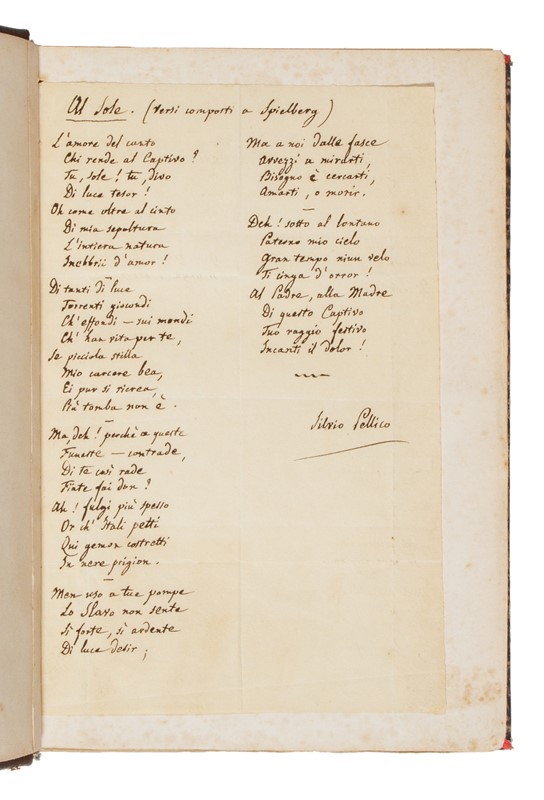 Al Sole. (versi composti a Spielberg)
L'amore del canto
Chi rende al Captivo?
Tu, sole! tu, divo
Di luce tesor!
Oh come oltre al cinto
Di mia sepoltura
L'intiera natura
Inebbrii d'amor!
Di tanti di luce
Torrenti giocondi
Ch'effondi – sui mondi
Ch' han vita per te,
Se picciola stilla
Mio carcere bea,
Ei pur si ricrea,
Più tomba non è.
Ma, deh! perchè a queste
Funeste – contrade,
Di te così rade
Finte fai don?
Ah! fulgi più spesso
Or ch' Itali petti
Qui gemon costretti
In nere prigion.
Men uso a tue pompe
Lo Slavo non sente
Sì forte, sì ardente
Di luce desir;
Ma a noi dalle fasce
Avvezzi a mirarti,
Bisogno è cercarti,
Amarti, o morir.
Deh! sotto al lontano
Paterno mio cielo
Gran tempo niun velo
Ti cinga d'orror!
Al Padre, alla Madre
Di questo Captivo
Tuo raggio festivo
Incanti il dolor!
Silvio Pellico